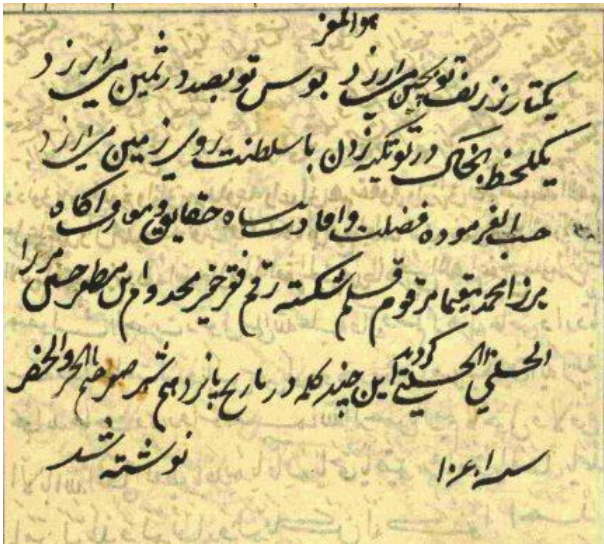 هو المعز
یکتار ز زلف تو بچین می ارزد بوس تو بصد در ثمین می ارزد
یکلحظه بخاک در تو تکیه زدن با سلطنت روی زمین می ارزد
حسب الفرموده فضیلت و افادت پناه حقایق و معارف آگاه
میرزا محمد مقیما مرقوم قلم شکسته رقم فقیر حقیر مخدوم ابن مظفر حسین میرزا
الحسنی الحسینی گردید این چند کلمه در تاریخ پانزدهم شهر صفر ختم بالخیر والظفر
سنه نوشته شد